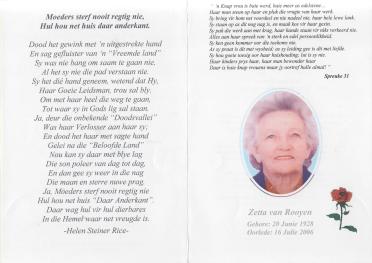 Moeders sterf nooit regtig nie,
Hul hou net huis daar anderkant.
Dood het gewink met 'n uitgestrekte hand
En sag gefluister van 'n "Vreemde land"
Sy was nie bang om saam te gaan nie.
Al het sy nie die pad verstaan nie.
Sy het dié hand geneem, wetend dat Hy,
Haar Goeie Leidsman, trou sal bly.
Om met haar heel die weg te gaan,
Tot waar sy in Gods lig sal staan.
Ja, deur die onbekende "Doodsvallei"
Was haar Verlosser aan haar sy;
En dood het haar met sagte hand
Gelei na die "Beloofde Land"
Nou kan sy daar met blye lag
Die son poleer van dag tot dag,
En dan gee sy weer in die nag
Die maan en sterre nuwe prag.
Ja, Moeders sterf nooit regtig nie
Hul hou net huis "Daar Anderkant".
Daar wag hul vir hul dierbares
In die Hemel waar net vreugde is.
-Helen Steiner Rice-
'n Knap vrou is baie werd, baie meer as edelstene. .
Haar man steun op haar en pluk die vrugte van haar werk.
Sy bring vir hom net voordeel en nie nadeel nie, haar hele lewe lank.
Sy staan op as dit nog nag is, en maak kos vir haar gesin.
Sy pak die werk aan met krag, haar hande staan vir niks verkeerd nie.
Alles aan haar spreek van 'n sterk en edel persoonlikheid.
Sy ken geen kommer oor die toekoms nie.
As sy praat is dit met wysheid en sy leiding gee is dit met liefde.
Sy hou goeie toesig oor haar huishouding, lui is sy nie.
Haar kinders prys haar, haar man bewonder haar
Daar is baie knap vrouens maar jy oortref hulle almal!
Spreuke 31
Zetta van Rooyen
Gebore: 20 Junie 1928
Oorlede: 16 Julie 2006